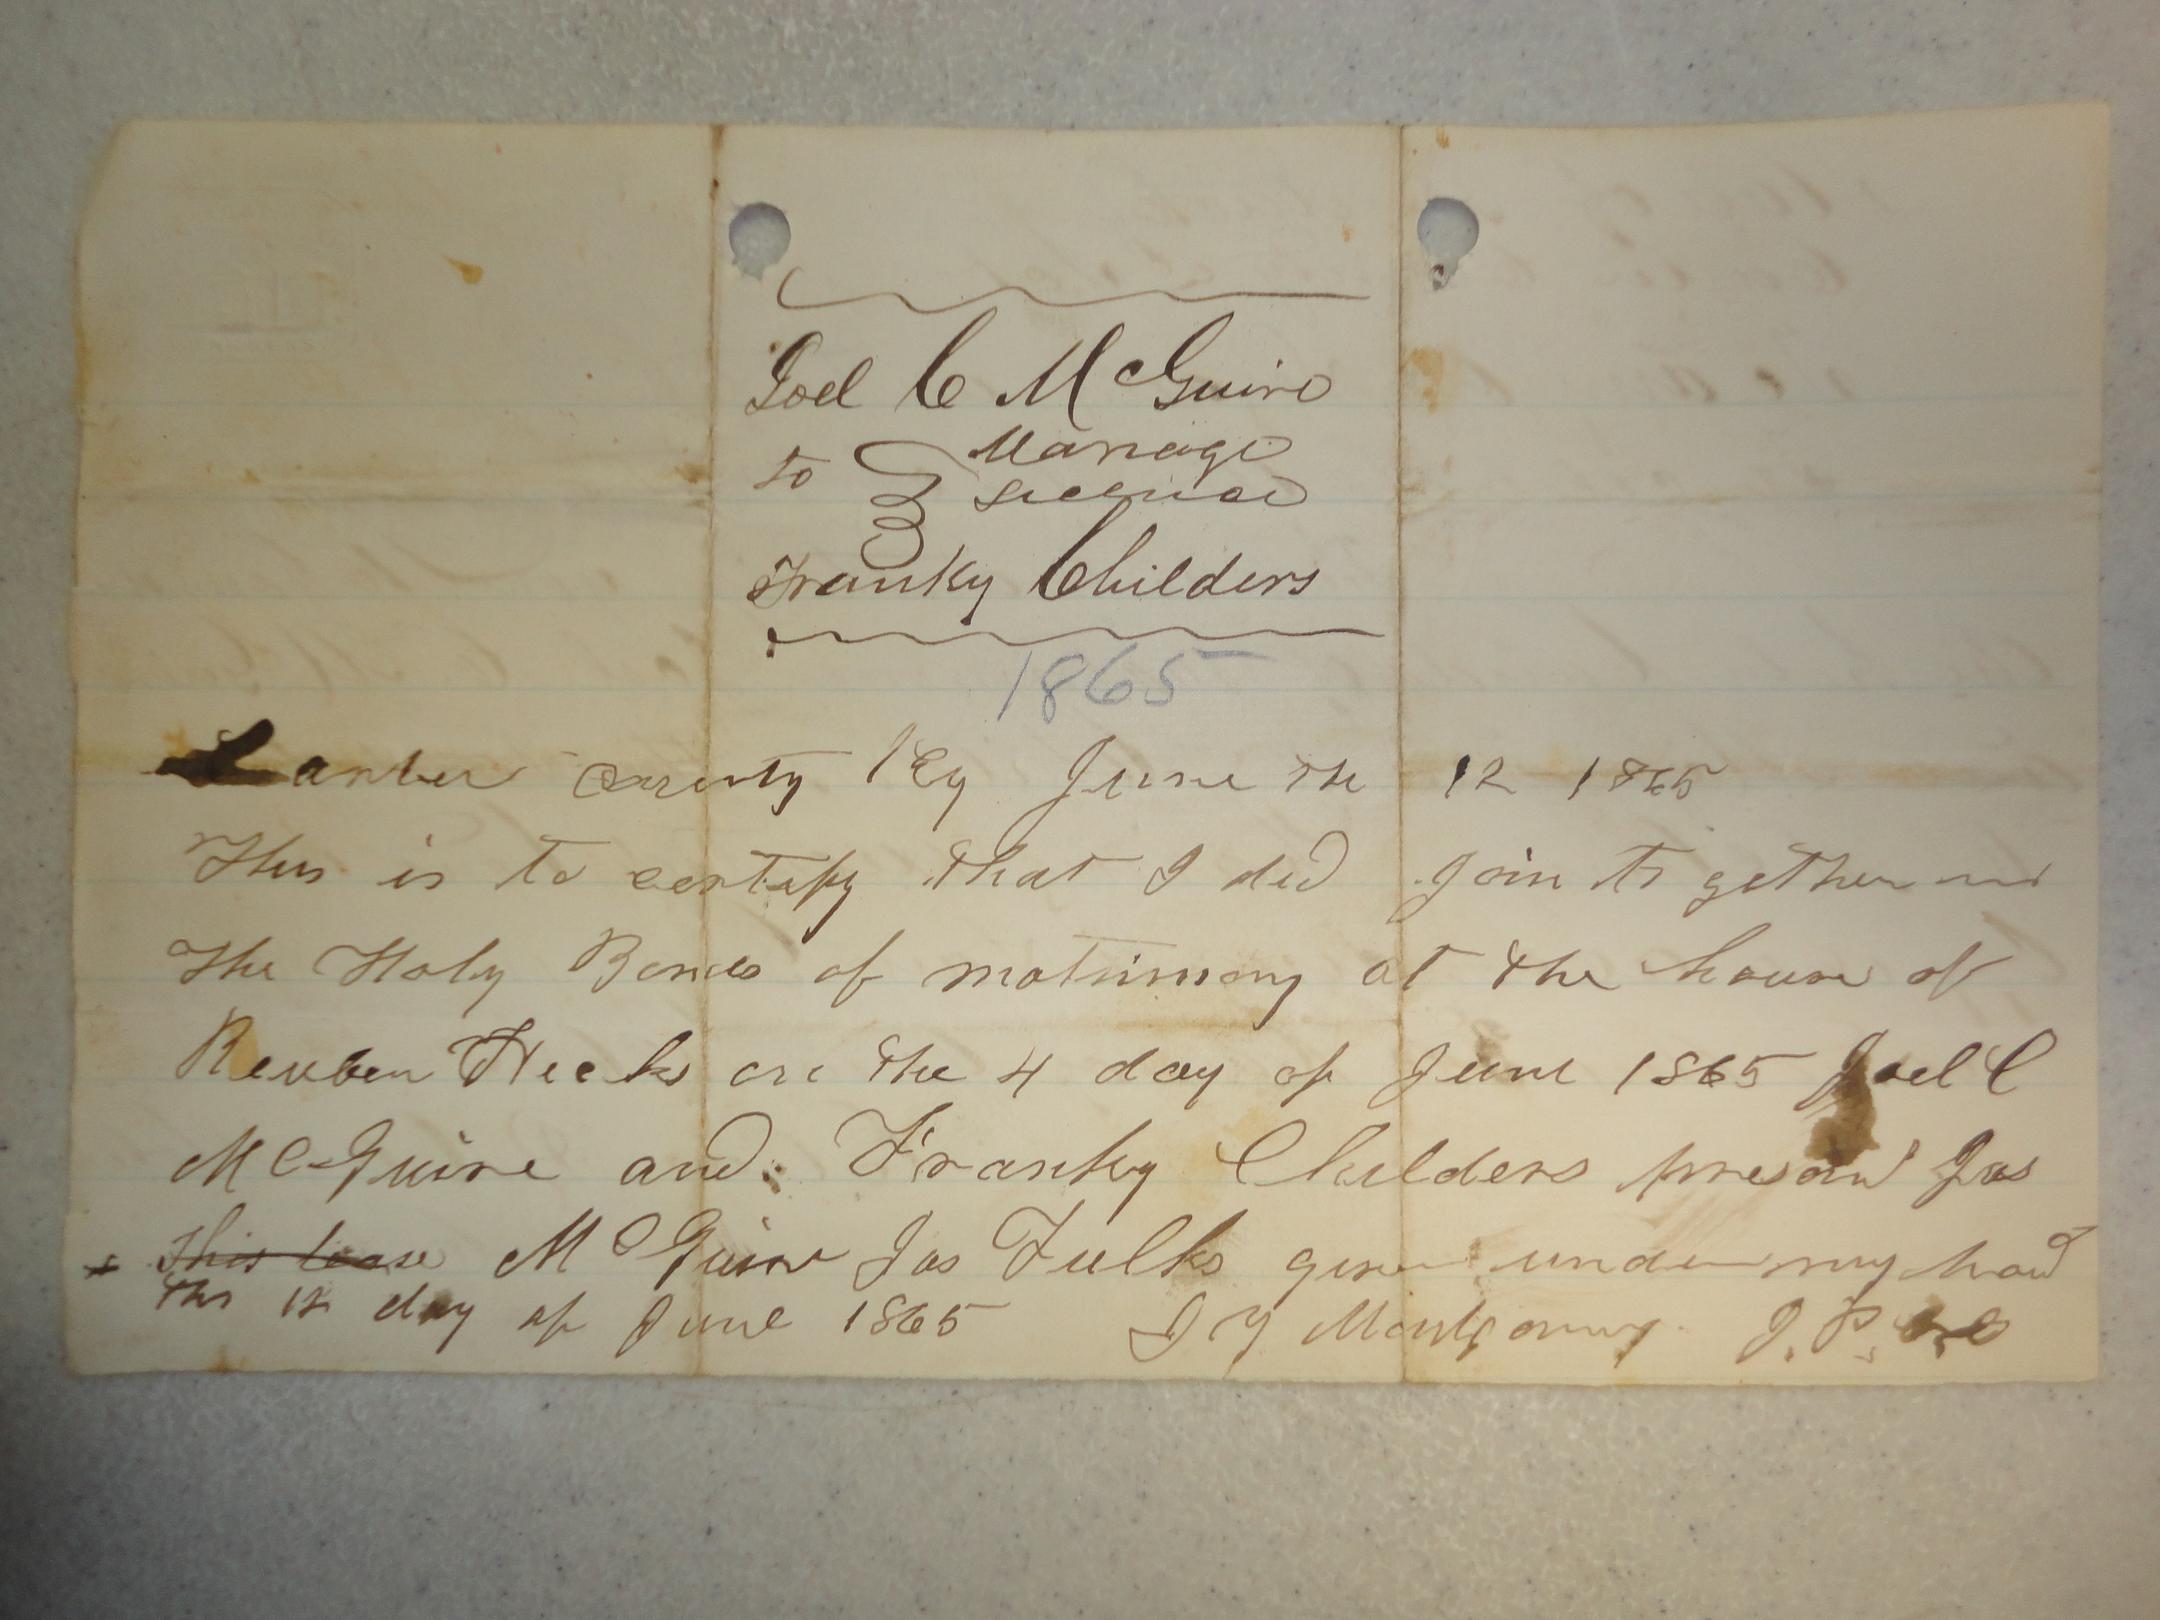 Joel C McGuire
to Marriage
License
Franky Childers
1865
Carter County Ky June the 12 1865
This is to certify that I did join together in
the Holy Bonds of matrimony at the house of
Reuben Hecks on the 4 day of June 1865 Joel C
McGuire and Franky Childers present Jas
this lease McGuire Jas Fulks given under my hand
this 12 day of June 1865 J Y Montgomery J.P.